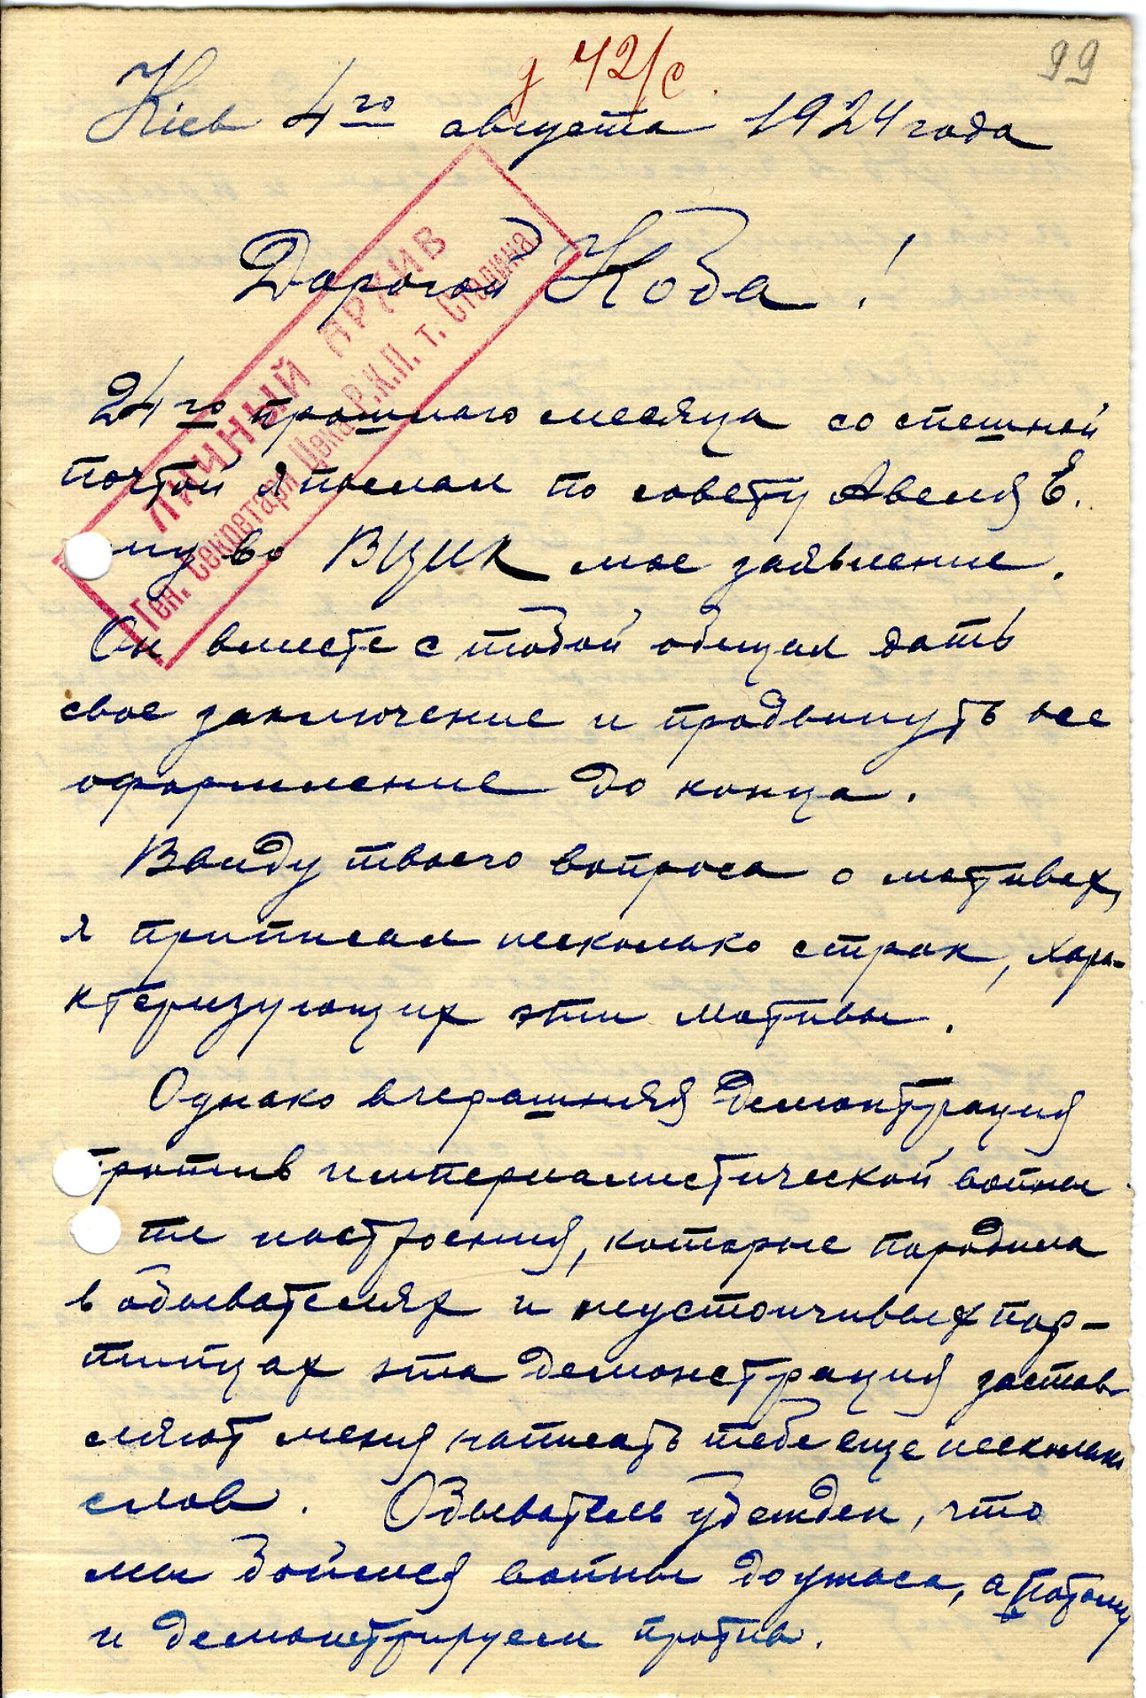 д 42/с.
99
Кіев 4го августа 1924 года
ЛИЧНЫЙ АРХИВ
Ген. Секретаря Цека Р.К.П. т. Сталина.
Дорогой Коба!
24го прошлого месяца со спешной
почтой я послал по совету Авеля Е.
му во ВЦИК мое заявление.
Он вместе с тобой обещал дать
свое заключение и продвинуть все
оформление до конца.
Ввиду твоего вопроса о мотивах,
я приписал несколько строк, хара-
ктеризующих эти мотивы.
Однако вчерашняя демонстрация
против империалистической войны
те настроения, которые породила
в обывателях и неустойчивых пар-
тийцах эта демонстрация застав
ляют меня написать тебе еще несколько
слов. Обыватель убежден, что
мы боимся войны до ужаса, а потому
и демонстрируем против.